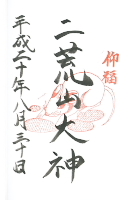 仰福
二荒山大神
平成二十年八月三十日